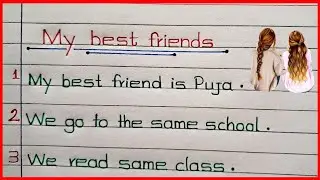 My best friends
1 My best friend is Puja.
2 We go to the same school.
3 We read same class.